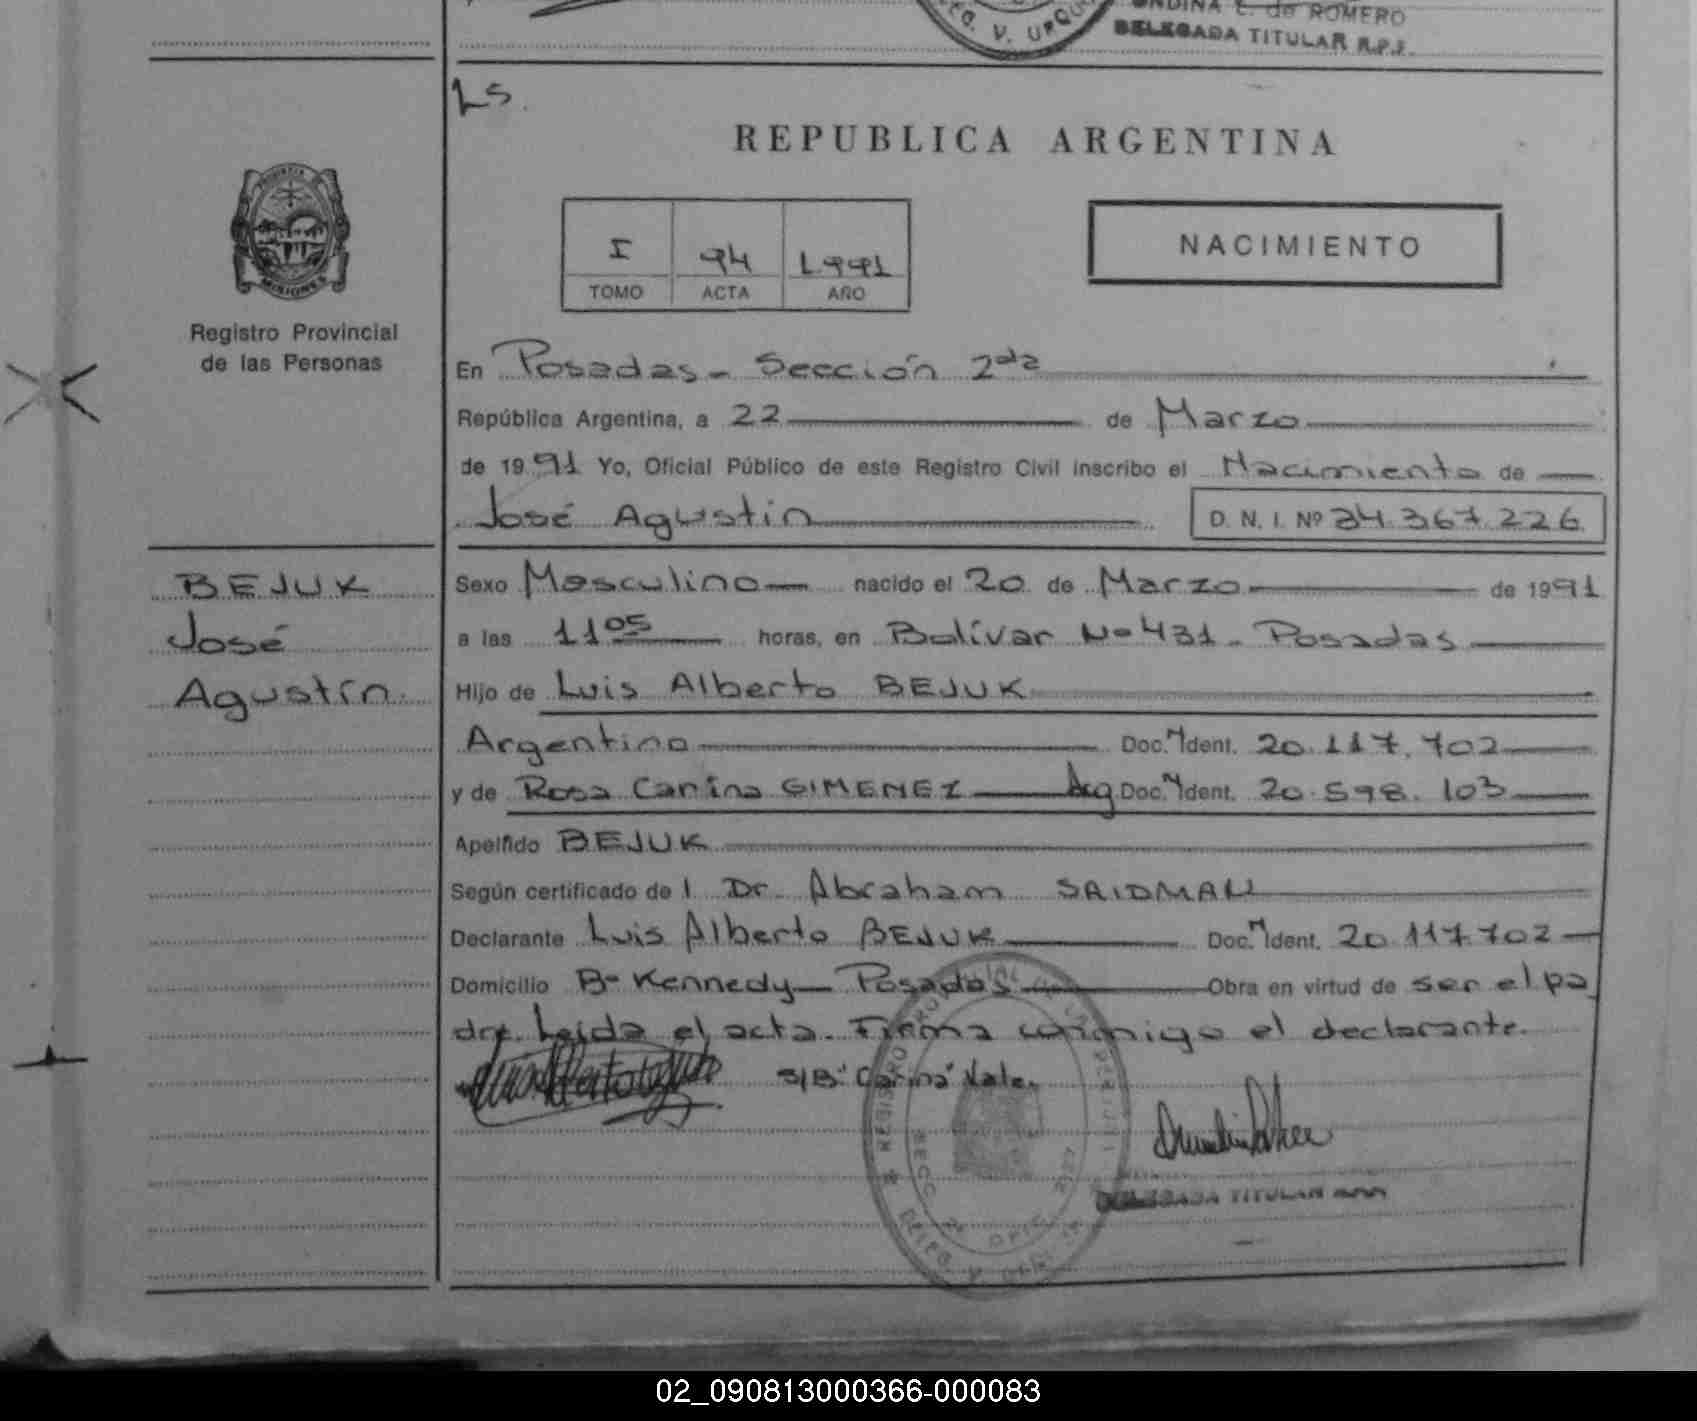 DELEG. V. URQU
ONDINA E. de ROMERO
DELEGADA TITULAR R.P.P.
LS.
REPUBLICA ARGENTINA
PROVINCIA DE
MISIONES
Registro Provincial
de las Personas
I 94 1.991
TOMO ACTA AÑO
NACIMIENTO
En Posadas - Sección 2da
República Argentina, a 22 de Marzo
de 1991 Yo, Oficial Público de este Registro Civil inscribo el Nacimiento de
José Agustín D. N. I. Nº 34.367.226
BEJUK
José
Agustín.
Sexo Masculino nacido el 20 de Marzo de 1991
a las 11 05 horas, en Bolívar Nº 431 - Posadas
Hijo de Luis Alberto BEJUK
Argentino Doc. N Ident. 20.117.702
y de Rosa Carina GIMENEZ Arg. Doc. N Ident. 20.598.103
Apellido BEJUK
Según certificado de l Dr. Abraham SAIDMAN
Declarante Luis Alberto BEJUK Doc. N Ident. 20.117.702
Domicilio Bº Kennedy - Posadas Obra en virtud de ser el pa
dre. Leida el acta. Firma conmigo el declarante.
S/B "Carina" Vale.
DELEGADA TITULAR
02_090813000366-000083